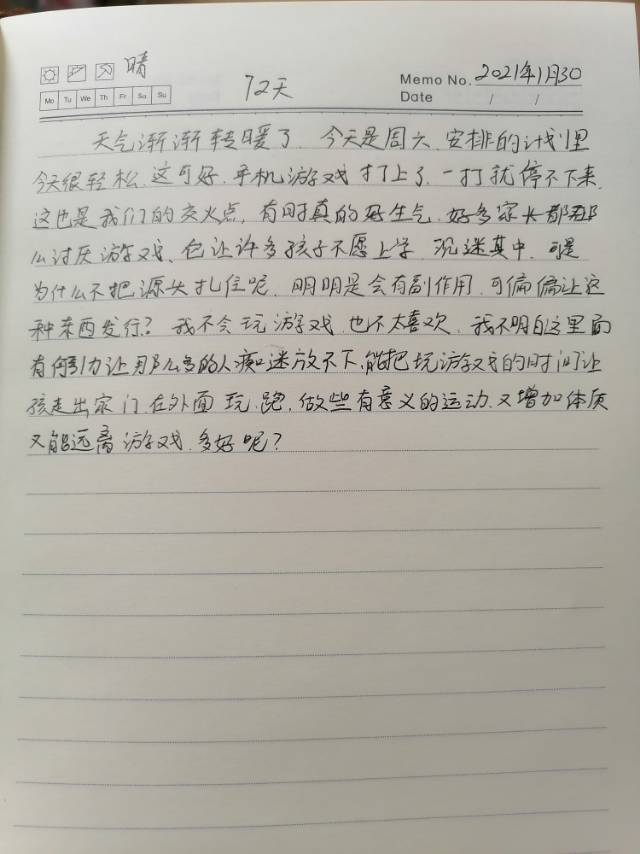 晴
72天
Memo No. 2021年1月30
Date / /
Mo Tu We Th Fr Sa Su
天气渐渐转暖了.今天是周六.安排的计划里
今天很轻松.这可好.手机游戏打上了.一打就停不下来.
这也是我们的交火点,有时真的好生气.好多家长都那
么讨厌游戏、它让许多孩子不愿上学.沉迷其中.可是
为什么不把源头扎住呢.明明是会有副作用.可偏偏让这
种东西发行?我不会玩游戏.也不太喜欢.我不明白这里面
有何引力让那么多的人痴迷放不下.能把玩游戏的时间让
孩走出家门在外面玩、跑.做些有意义的运动.又增加体质
又能远离游戏.多好呢?